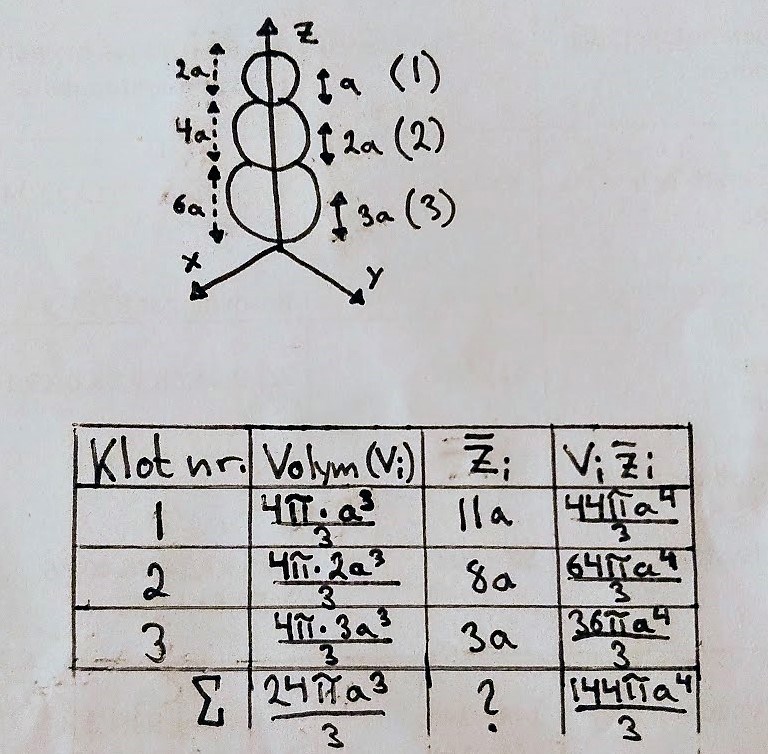 z
2a a (1)
4a 2a (2)
6a 3a (3)
x y
Klot nr. Volym (Vi) z̄i Vi z̄i
1 4π·a³/3 11a 44πa⁴/3
2 4π·2a³/3 8a 64πa⁴/3
3 4π·3a³/3 3a 36πa⁴/3
Σ 24πa³/3 ? 144πa⁴/3